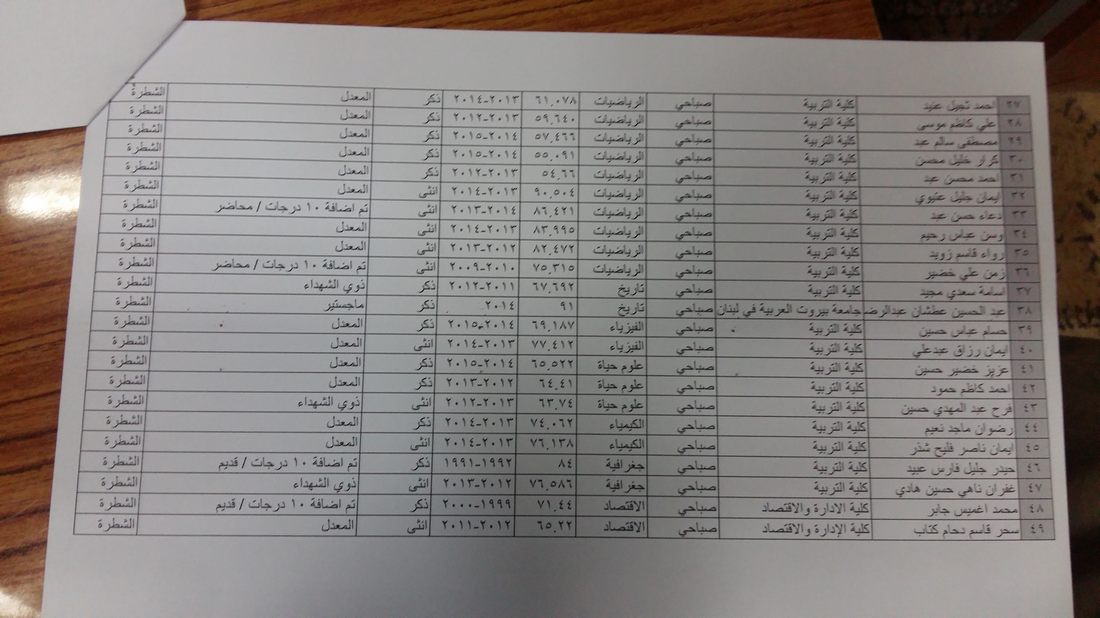 ٢٧ احمد ثجيل عنيد كلية التربية صباحي الرياضيات ٦١.٠٧٨ ٢٠١٣-٢٠١٤ ذكر المعدل الشطرة
٢٨ علي كاظم موسى كلية التربية صباحي الرياضيات ٥٩.٦٤٠ ٢٠١٣-٢٠١٢ ذكر المعدل الشطرة
٢٩ مصطفى سالم عبد كلية التربية صباحي الرياضيات ٥٧.٤٦٦ ٢٠١٤-٢٠١٥ ذكر المعدل الشطرة
٣٠ كرار خليل محسن كلية التربية صباحي الرياضيات ٥٥.٠٩١ ٢٠١٤-٢٠١٥ ذكر المعدل الشطرة
٣١ احمد محسن عبد كلية التربية صباحي الرياضيات ٥٤.٦٦ ٢٠١٣-٢٠١٢ ذكر المعدل الشطرة
٣٢ ايمان جليل عليوي كلية التربية صباحي الرياضيات ٩٠.٥٠٤ ٢٠١٣-٢٠١٤ انثى المعدل الشطرة
٣٣ دعاء حسن عبد كلية التربية صباحي الرياضيات ٨٦.٤٢١ ٢٠١٤-٢٠١٣ انثى تم اضافة ١٠ درجات / محاضر الشطرة
٣٤ وسن عباس رحيم كلية التربية صباحي الرياضيات ٨٣.٩٩٥ ٢٠١٣-٢٠١٤ انثى المعدل الشطرة
٣٥ رواء قاسم زويد كلية التربية صباحي الرياضيات ٨٢.٤٧٢ ٢٠١٢-٢٠١٣ انثى المعدل الشطرة
٣٦ زمن علي خضير كلية التربية صباحي الرياضيات ٧٥.٣١٥ ٢٠١٠-٢٠٠٩ انثى تم اضافة ١٠ درجات / محاضر الشطرة
٣٧ اسامة سعدي مجيد كلية التربية صباحي تاريخ ٦٧.٦٩٢ ٢٠١١-٢٠١٢ ذكر ذوي الشهداء الشطرة
٣٨ عبد الحسين عطشان عبدالرض جامعة بيروت العربية في لبنان صباحي تاريخ ٩١ ٢٠١٤ ذكر ماجستير الشطرة
٣٩ حسام عباس حسين كلية التربية صباحي الفيزياء ٦٩.١٨٧ ٢٠١٤-٢٠١٥ ذكر المعدل الشطرة
٤٠ ايمان رزاق عبدعلي كلية التربية صباحي الفيزياء ٧٧.٤١٢ ٢٠١٣-٢٠١٤ انثى المعدل الشطرة
٤١ عزيز خضير حسين كلية التربية صباحي علوم حياة ٦٥.٥٢٢ ٢٠١٤-٢٠١٥ ذكر المعدل الشطرة
٤٢ احمد كاظم حمود كلية التربية صباحي علوم حياة ٦٤.٤١ ٢٠١٢-٢٠١٣ ذكر المعدل الشطرة
٤٣ فرح عبد المهدي حسين كلية التربية صباحي علوم حياة ٦٣.٧٤ ٢٠١٣-٢٠١٢ انثى ذوي الشهداء الشطرة
٤٤ رضوان ماجد نعيم كلية التربية صباحي الكيمياء ٧٤.٠٦٢ ٢٠١٣-٢٠١٤ ذكر المعدل الشطرة
٤٥ ايمان ناصر فليح شذر كلية التربية صباحي الكيمياء ٧٦.١٣٨ ٢٠١٣-٢٠١٤ انثى المعدل الشطرة
٤٦ حيدر جليل فارس عبيد كلية التربية صباحي جغرافية ٨٤ ١٩٩٢-١٩٩١ ذكر تم اضافة ١٠ درجات / قديم الشطرة
٤٧ غفران ناهي حسين هادي كلية التربية صباحي جغرافية ٧٦.٥٨٦ ٢٠١٢-٢٠١٣ انثى ذوي الشهداء الشطرة
٤٨ محمد اغميس جابر كلية الادارة والاقتصاد صباحي الاقتصاد ٧١.٤٤ ١٩٩٩-٢٠٠٠ ذكر تم اضافة ١٠ درجات / قديم الشطرة
٤٩ سحر قاسم دحام كتاب كلية الإدارة والاقتصاد صباحي الاقتصاد ٦٥.٢٢ ٢٠١٢-٢٠١١ انثى المعدل الشطرة